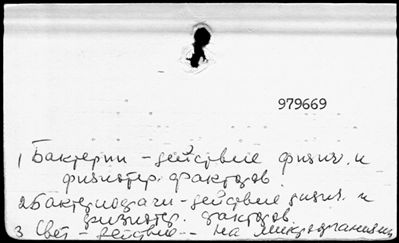 979669
1 Бактерии - действие физич. и
физиотер. факторов.
2 Бактериофаги - действие физич. и
физиотер. факторов.
3 Свет - действие - на микроорганизмы